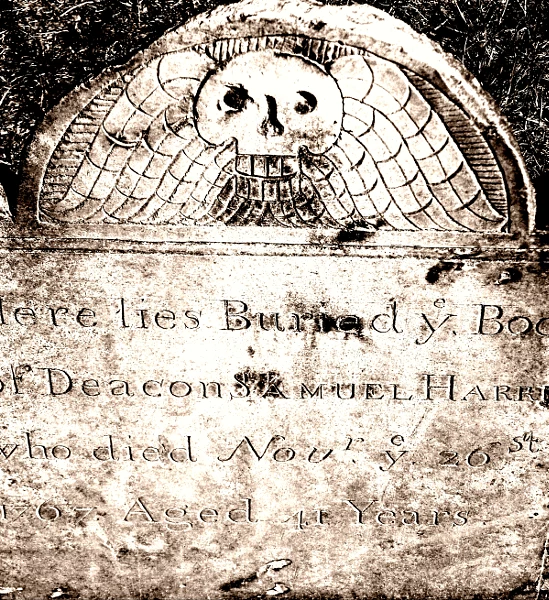 Here lies Buried yͤ. Bod
of Deacon SAMUEL HARR
who died Novʳ. yͤ. 26ˢᵗ
1767 Aged 41 Years